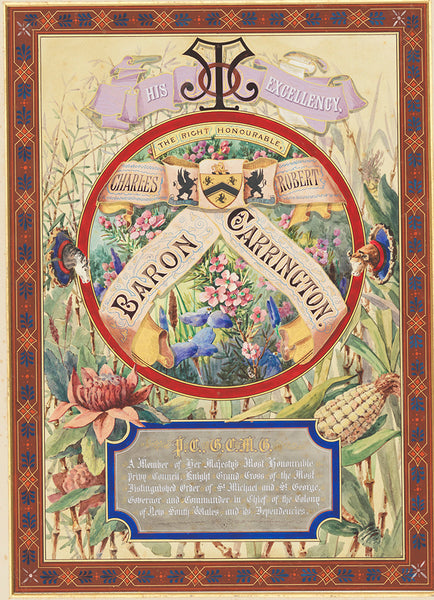 To
HIS EXCELLENCY,
THE RIGHT HONOURABLE,
CHARLES ROBERT
BARON CARRINGTON.
P.C., G.C.M.G.
A Member of Her Majesty's Most Honourable
Privy Council, Knight Grand Cross of the Most
Distinguished Order of St. Michael and St. George,
Governor and Commander in Chief of the Colony
of New South Wales and its Dependencies.